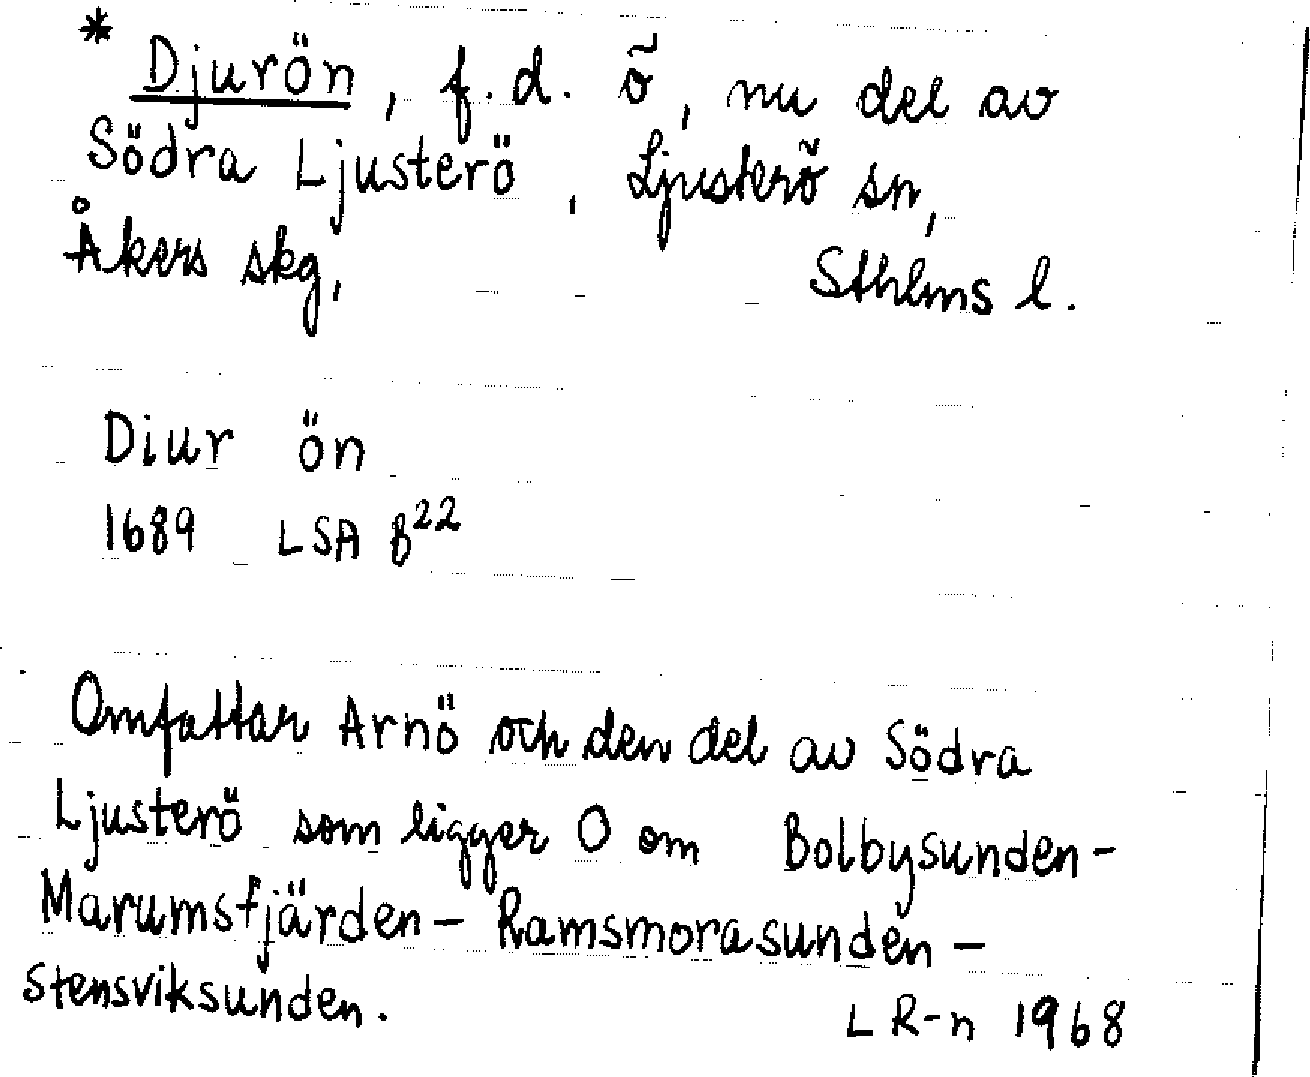 * Djurön, f.d. ö, nu del av
Södra Ljusterö, Ljusterö sn,
Åkers skg, Sthlms l.
Diur ön
1689 LSA B²²
Omfattar Arnö och den del av Södra
Ljusterö som ligger O om Bolbysunden-
Marumsfjärden - Ramsmorasunden -
Stensviksunden.
L R-n 1968